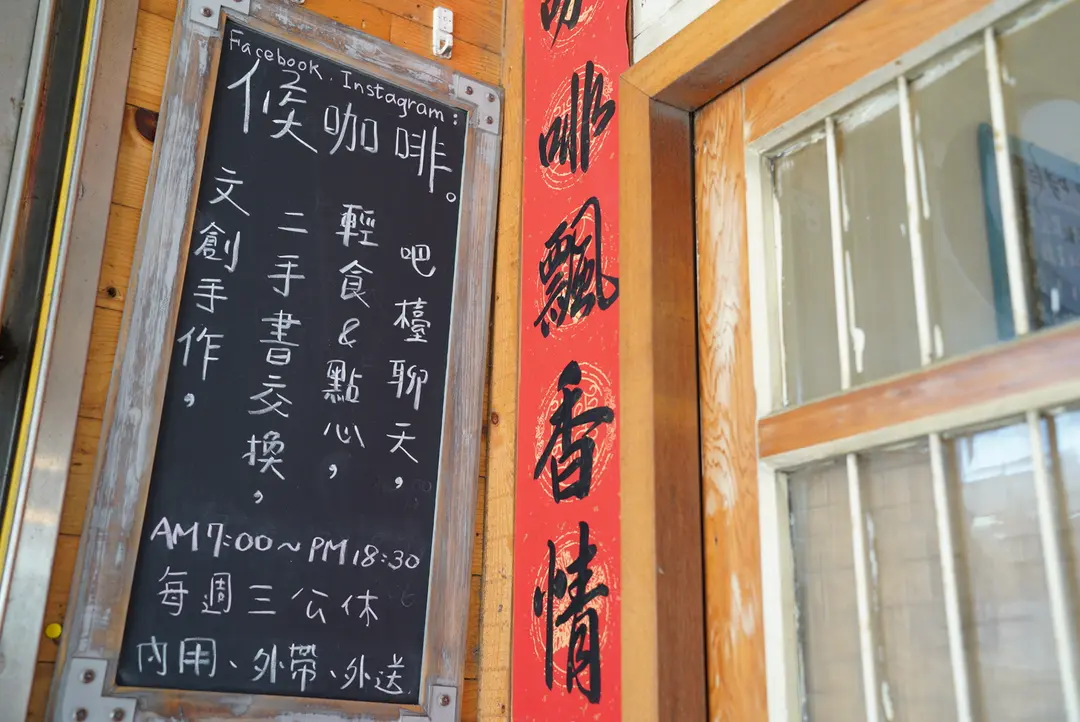 Facebook. Instagram:
候咖啡。
吧檯聊天，
輕食&點心，
二手書交換，
文創手作，
AM7:00~PM18:30
每週三公休
內用、外帶、外送
啡飄香情